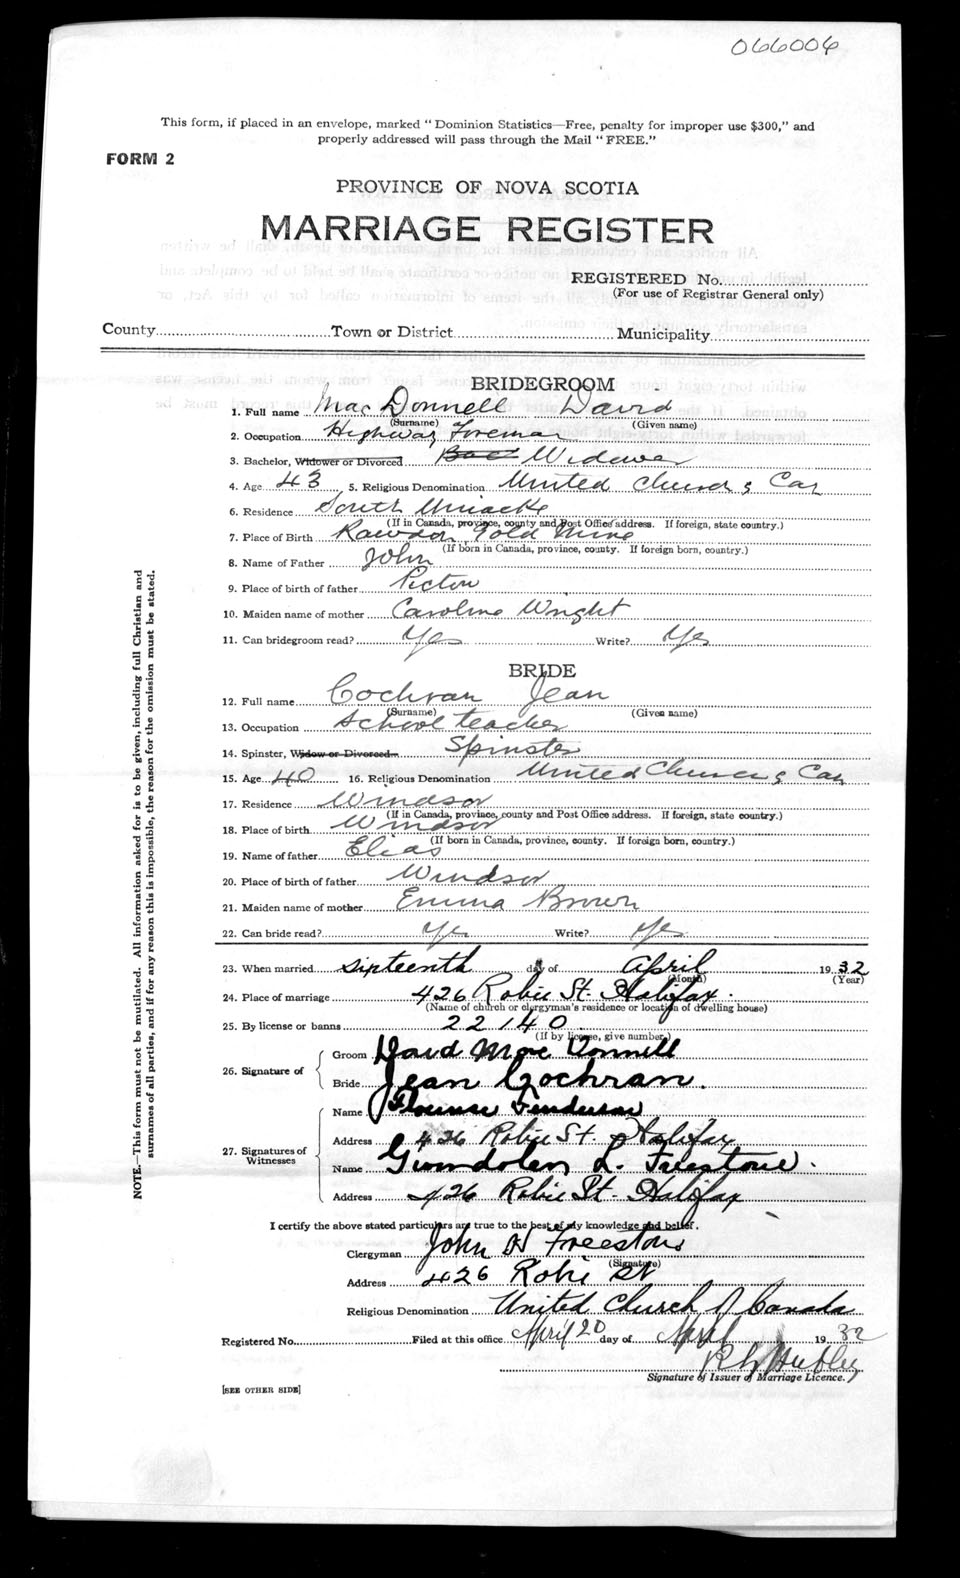 066006
This form, if placed in an envelope, marked "Dominion Statistics—Free, penalty for improper use $300," and
properly addressed will pass through the Mail "FREE."
FORM 2
PROVINCE OF NOVA SCOTIA
MARRIAGE REGISTER
REGISTERED No.
(For use of Registrar General only)
County Town or District Municipality
BRIDEGROOM
1. Full name MacDonnell David
(Surname) (Given name)
2. Occupation Highway Foreman
3. Bachelor, Widower or Divorced Bac Widower
4. Age 43 5. Religious Denomination United Church of Can
6. Residence South Uniacke
(If in Canada, province, county and Post Office address. If foreign, state country.)
7. Place of Birth Rawdon Gold Mine
(If born in Canada, province, county. If foreign born, country.)
8. Name of Father John
9. Place of birth of father Pictou
10. Maiden name of mother Caroline Wright
11. Can bridegroom read? Yes Write? Yes
BRIDE
12. Full name Cochran Jean
(Surname) (Given name)
13. Occupation School teacher
14. Spinster, Widow or Divorced Spinster
15. Age 40 16. Religious Denomination United Church of Can
17. Residence Windsor
(If in Canada, province, county and Post Office address. If foreign, state country.)
18. Place of birth Windsor
(If born in Canada, province, county. If foreign born, country.)
19. Name of father Elias
20. Place of birth of father Windsor
21. Maiden name of mother Emma Brown
22. Can bride read? Yes Write? Yes
23. When married sixteenth day of April 1932
(Month) (Year)
24. Place of marriage 426 Robie St. Halifax.
(Name of church or clergyman's residence or location of dwelling house)
25. By license or banns 22140
(If by license, give number.)
26. Signature of Groom David MacDonnell
Bride Jean Cochran.
27. Signatures of Witnesses Name Florence
Address 426 Robie St. Halifax
Name Gwendolen L. Freestone.
Address 426 Robie St. Halifax
I certify the above stated particulars are true to the best of my knowledge and belief.
Clergyman John H Freestone
(Signature)
Address 426 Robie St
Religious Denomination United Church of Canada
Registered No. Filed at this office April 20 day of April 1932
Signature of Issuer of Marriage Licence.
[SEE OTHER SIDE]
NOTE.—This form must not be mutilated. All information asked for is to be given, including full Christian and
surnames of all parties, and if for any reason this is impossible, the reason for the omission must be stated.